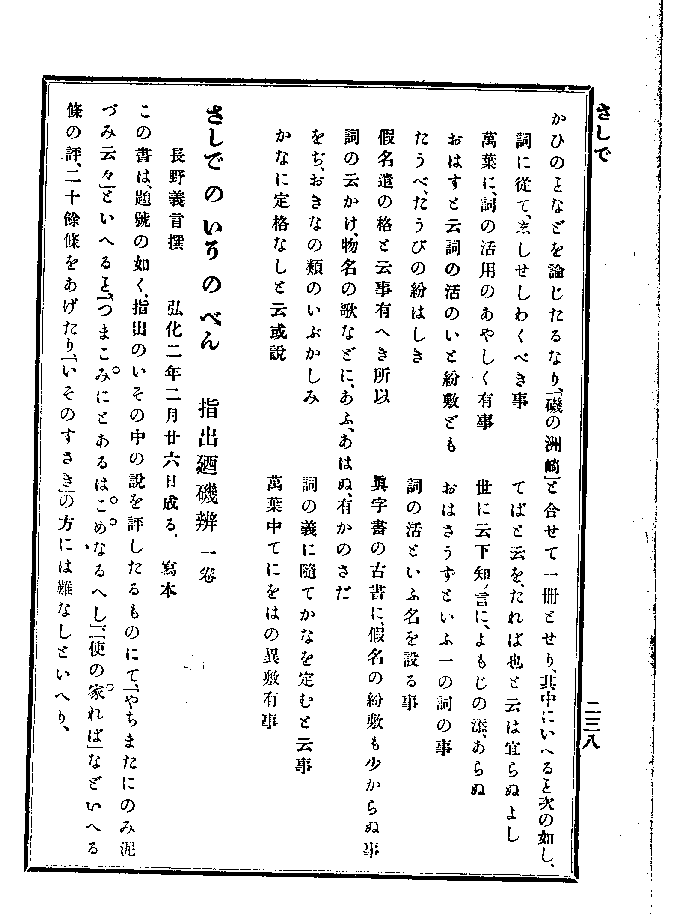 さしで
二三八
かひのとなどを論じたるなり、「磯の洲崎」と合せて一冊とせり、其中にいへると次の如し、
詞に從て、京しせしわくべき事
てばと云を、たれば也と云は宜らぬよし
萬葉に、詞の活用のあやしく有事
世に云下知ノ言に、よもじの添、あらぬ
おはすと云詞の活のいと紛敷ども
おはさうすといふ一の詞の事
たうべ、たうびの紛はしき
詞の活といふ名を設る事
假名遣の格と云事有へき所以
眞字書の古書に、假名の紛敷も少からぬ事
詞の云かけ、物名の歌などに、あふ、あはぬ、有かのさだ
をぢ、おきなの類のいぶかしみ
詞の義に隨てかなを定むと云事
かなに定格なしと云或說
萬葉中てにをはの異敷有事
さしで の いそ の べん　指出廼磯辨 一卷
長野義言撰　弘化二年二月廿六日成る、　寫本
この書は、題號の如く、指出のいその中の說を評したるものにて、「やちまたにのみ泥
づみ云々」といへると、「つまこみにとあるはこめなるへし」、「使の家れば」などいへる
條の評、二十餘條をあげたり、「いそのすさき」の方には難なしといへり、